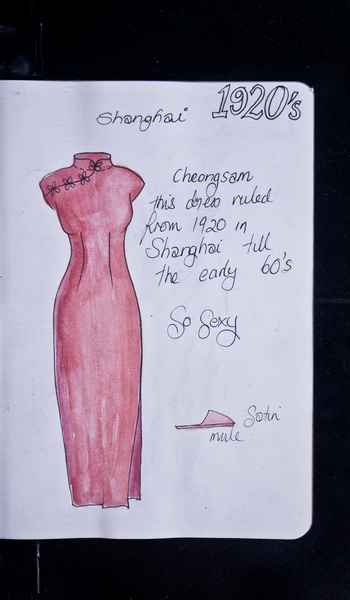 1920's
Shanghai
Cheongsam
this dress ruled
from 1920 in
Shanghai till
the early 60's
So Sexy
Satin
mule